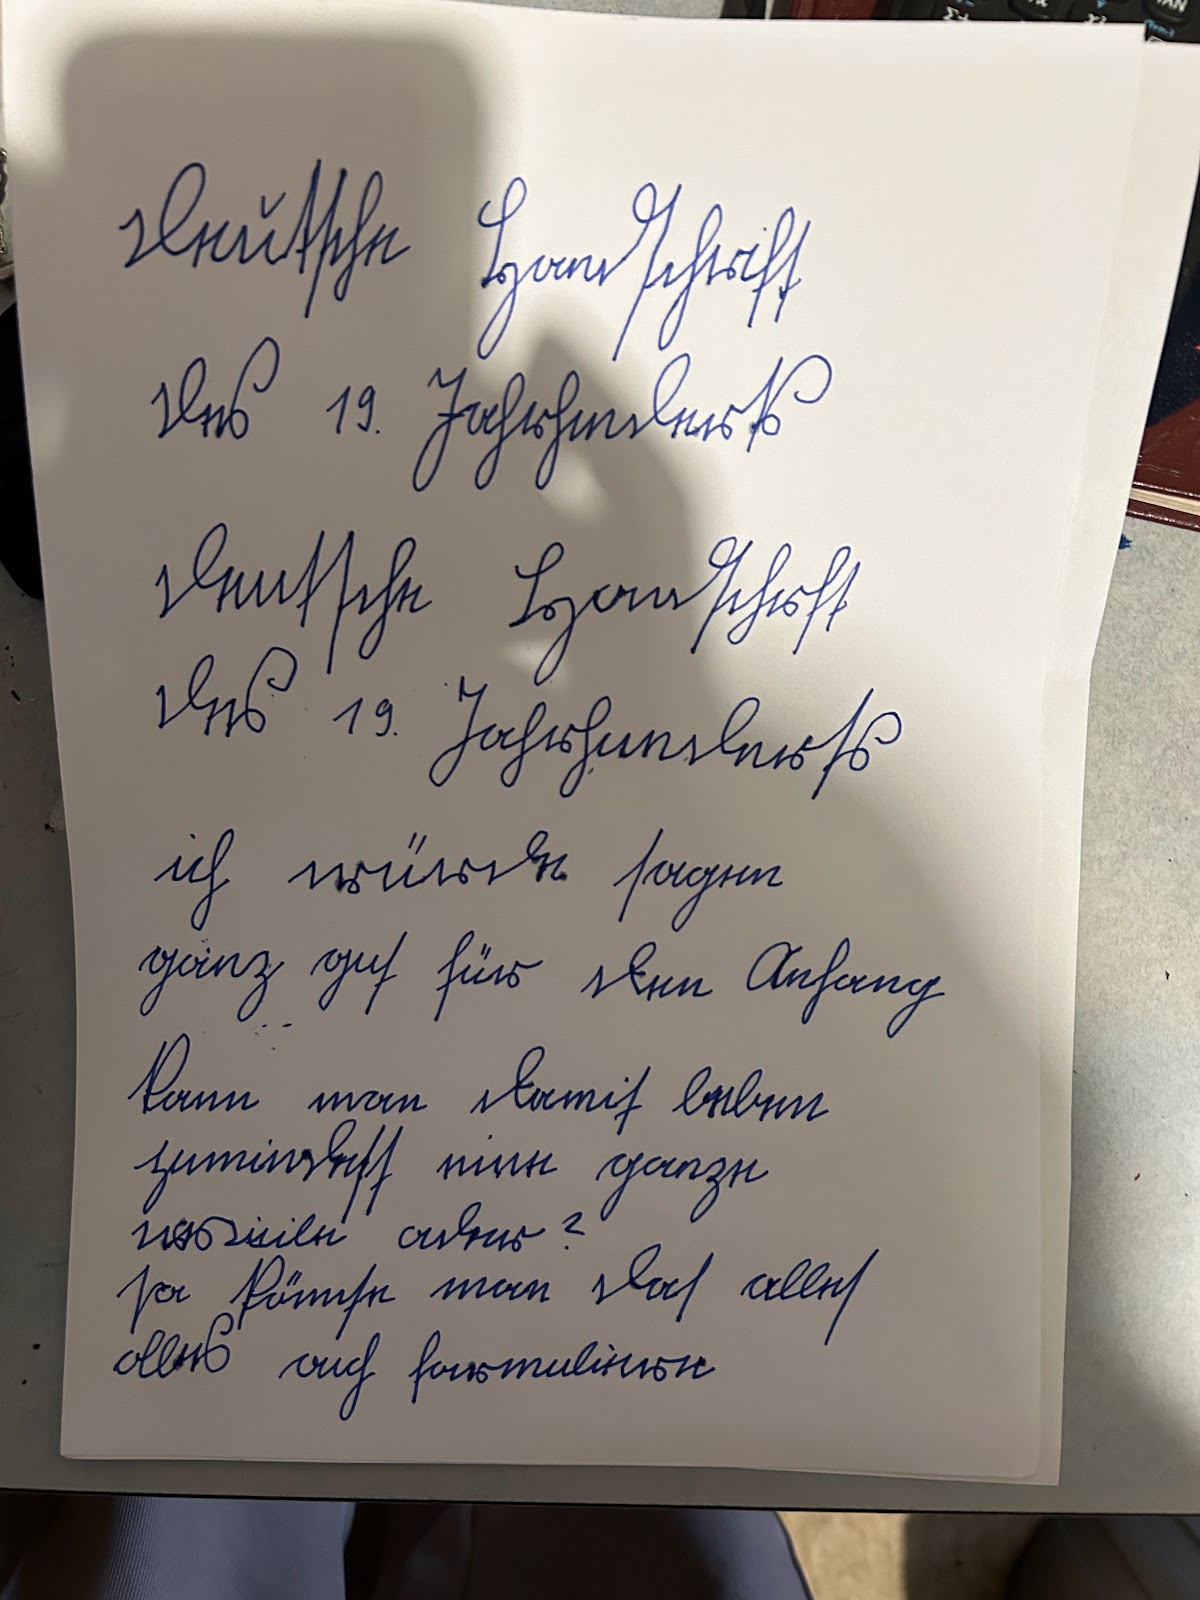 Deutsche Handschrift
des 19. Jahrhunderts
Deutsche Handschrift
des 19. Jahrhunderts
ich würde sagen
ganz gut für den Anfang
kann man damit leben
zumindest eine ganze
weile oder?
so könnte man das alles
alles auch formulieren